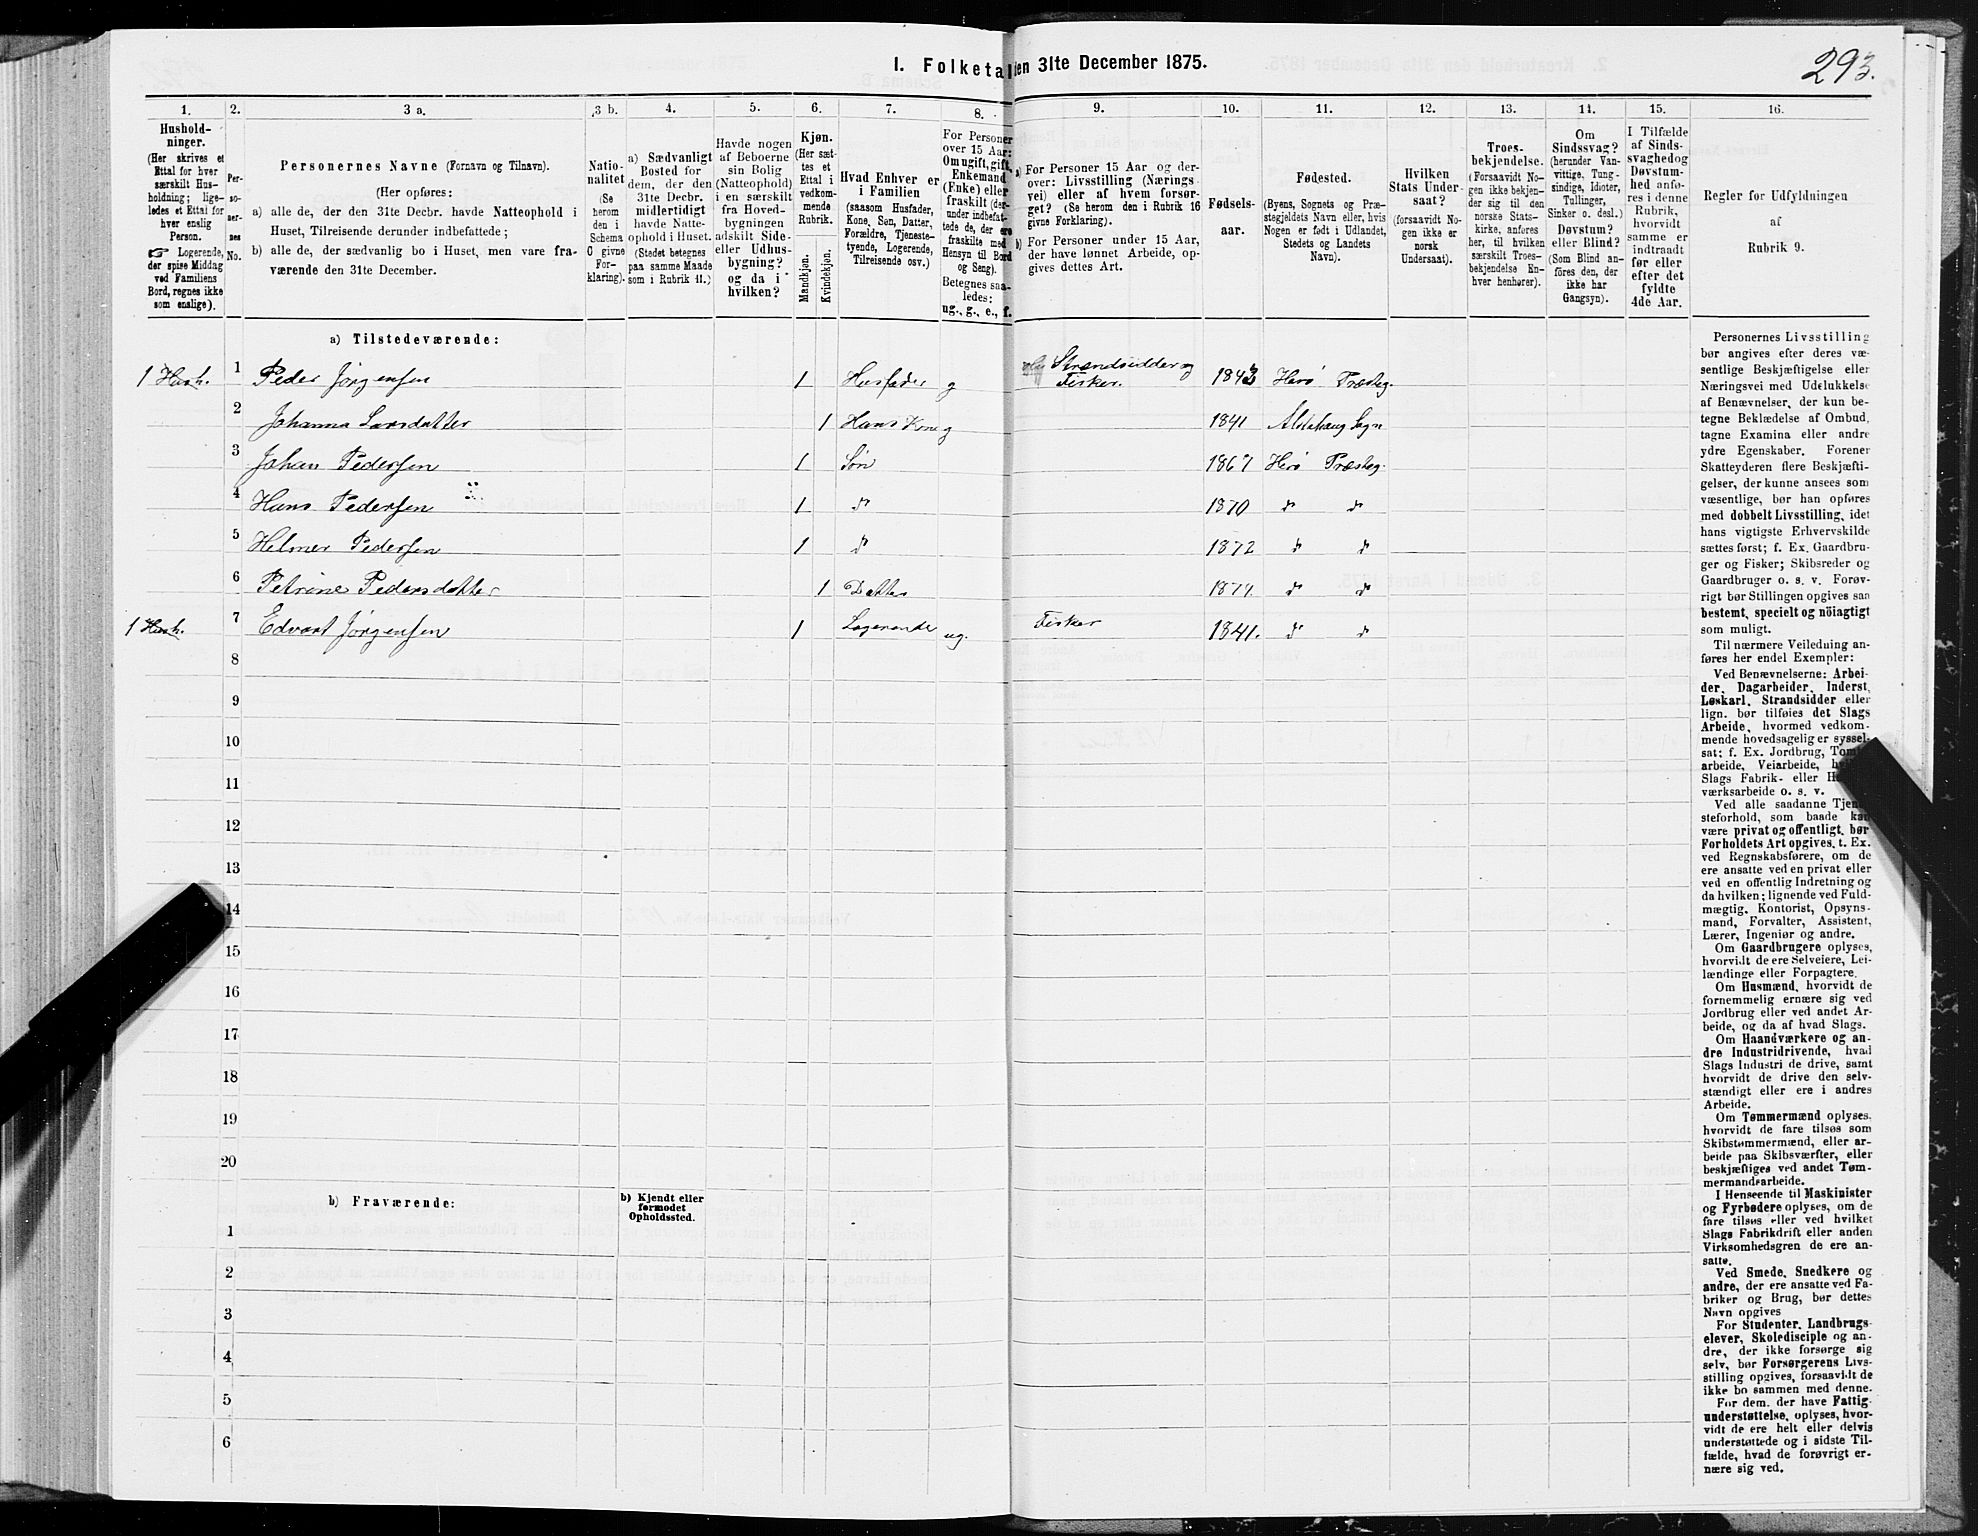 I. Folketal den 31te December 1875.
293.
1.
2.
3 a.
3 b.
4.
5.
6.
7.
8.
9.
10.
11.
12.
13.
14.
15.
16.
Hushold-
ninger.
(Her skrives et
Ettal for hver
særskilt Hus-
holdning; lige-
ledes et Ettal for
hver enslig
Person.
☞ Logerende,
der spise Middag
ved Familiens
Bord, regnes ikke
som enslige).
Per-
so-
ner-
nes
No.
Personernes Navne (Fornavn og Tilnavn).
(Her opføres:
a) alle de, der den 31te Decbr. havde Natteophold i
Huset, Tilreisende derunder indbefattede;
b) alle de, der sædvanlig bo i Huset, men vare fra-
værende den 31te December.
Natio-
nalitet
(Se
herom
den i
Schema
O givne
For-
klaring).
a) Sædvanligt
Bosted for
dem, der den
31te Decbr.
midlertidigt
havde Natte-
ophold i Huset.
(Stedet betegnes
paa samme Maade
som i Rubrik 11.)
Havde nogen
af Beboerne
sin Bolig
(Natteophold)
i en særskilt
fra Hoved-
bygningen
adskilt Side-
eller Udhus-
bygning?
og da i
hvilken?
Kjøn.
(Her sæt-
tes et
Ettal i
vedkom-
mende
Rubrik.
Mandkjøn.
Kvindekjøn.
Hvad Enhver er
i Familien
(saasom Husfader,
Kone, Søn, Datter,
Forældre, Tjeneste-
tyende, Logerende,
Tilreisende osv.)
For Personer
over 15 Aar:
Om ugift, gift,
Enkemand
(Enke) eller
fraskilt (der-
under indbefat-
tede de, der ere
fraskilte med
Hensyn til Bord
og Seng).
Betegnes saa-
ledes:
ug., g., e., f.
a) For Personer 15 Aar og der-
over: Livsstilling (Nærings-
vei) eller af hvem forsør-
get? (Se herom den i Rubrik 16
givne Forklaring).
b) For Personer under 15 Aar,
der have lønnet Arbeide, op-
gives dettes Art.
Fødsels-
aar.
Fødested.
(Byens, Sognets og Præ-
stegjeldets Navn eller, hvis
Nogen er født i Udlandet,
Stedets og Landets
Navn).
Hvilken
Stats Under-
saat?
(forsaavidt No-
gen ikke er
norsk
Undersaat).
Troes-
bekjendelse.
(Forsaavidt No-
gen ikke bekjen-
der sig til den
norske Stats-
kirke, anføres
her, til hvilken
særskilt Troes-
bekjendelse En-
hver henhører).
Om
Sindssvag?
(herunder Van-
vittige, Tung-
sindige, Idioter,
Tullinger,
Sinker o. desl.)
Døvstum?
eller Blind?
(Som Blind an-
føres den, der
ikke har
Gangsyn).
I Tilfælde
af Sinds-
svaghed og
Døvstum-
hed anfø-
res i denne
Rubrik,
hvorvidt
samme er
indtraadt
før eller
efter det
fyldte
4de Aar.
Regler for Udfyldningen
af
Rubrik 9.
a) Tilstedeværende:
1 Hush. 1 Peder Jörgensen 1 Husfader g Strandsidder og Fisker. 1842 Herö Præsteg.
2 Johanna Larsdatter 1 Hans Kone g 1841 Alstahaug Sogn
3 Johan Pedersen 1 Sön 1867 Herö Præsteg.
4 Hans Pedersen 1 do 1870 do do
5 Helmer Pedersen 1 do 1872 do do
6 Petrine Pedersdatter 1 Datter 1874 do do
1 Hush. 7 Edvart Jörgensen 1 Logerende ug. Fisker 1841. do do
8
9
10
11
12
13
14
15
16
17
18
19
20
b) Fraværende:
b) Kjendt eller
formodet
Opholdssted.
1
2
3
4
5
6
Personernes Livsstilling
bør angives efter deres væ-
sentlige Beskjæftigelse eller
Næringsvei med Udelukkelse
af Benævnelser, der kun be-
tegne Beklædelse af Ombud,
tagne Examina eller andre
ydre Egenskaber. Forener
Skatteyderen flere Beskjæfti-
gelser, der kunne ansees som
væsentlige, bør han opføres
med dobbelt Livsstilling, idet
hans vigtigste Erhvervskilde
sættes først; f. Ex. Gaardbru-
ger og Fisker; Skibsreder og
Gaardbruger o. s. v. Forøv-
rigt bør Stillingen opgives saa
bestemt, specielt og nöiagtigt
som muligt.
Til nærmere Veiledning an-
føres her endel Exempler:
Ved Benævnelserne: Arbei-
der, Dagarbeider, Inderst,
Løskarl, Strandsidder eller
lign. bør tilføies det Slags
Arbeide, hvormed vedkom-
mende hovedsagelig er syssel-
sat; f. Ex. Jordbrug, Tomt-
arbeide, Veiarbeide, hvilket
Slags Fabrik- eller Haand-
værksarbeide o. s. v.
Ved alle saadanne Tjene-
steforhold, som baade kan
være privat og offentligt, bør
Forholdets Art opgives, t. Ex.
ved Regnskabsførere, om de
ere ansatte ved en privat eller
ved en offentlig Indretning og
da hvilken; lignende ved Fuld-
mægtig, Kontorist, Opsyns-
mand, Forvalter, Assistent,
Lærer, Ingeniør og andre.
Om Gaardbrugere oplyses,
hvorvidt de ere Selveiere, Lei-
lændinge eller Forpagtere.
Om Husmænd, hvorvidt de
fornemmelig ernære sig ved
Jordbrug eller ved andet Ar-
beide, og da af hvad Slags.
Om Haandværkere og an-
dre Industridrivende, hvad
Slags Industri de drive, samt
hvorvidt de drive den selv-
stændigt eller ere i andres
Arbeide.
Om Tømmermænd oplyses,
hvorvidt de fare tilsøs som
Skibstømmermænd, eller ar-
beide paa Skibsværfter, eller
beskjæftiges ved andet Tøm-
mermandsarbeide.
I Henseende til Maskinister
og Fyrbødere oplyses, om de
fare tilsøs eller ved hvilket
Slags Fabrikdrift eller anden
Virksomhedsgren de ere an-
satte.
Ved Smede, Snedkere og
andre, der ere ansatte ved Fa-
briker og Brug, bør dettes
Navn opgives
For Studenter, Landbrugs-
elever, Skoledisciple og an-
dre, der ikke forsørge sig
selv, bør Forsørgerens Livs-
stilling opgives, forsaavidt de
ikke bo sammen med denne.
For dem, der have Fattig-
understøttelse, oplyses, hvor-
vidt de ere helt eller delvis
understøttede og i sidste Til-
fælde, hvad de forøvrigt er-
nære sig ved.